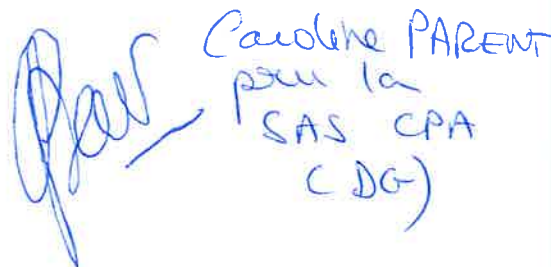 Caroline PARENT
pour la
SAS CPA
(DG)